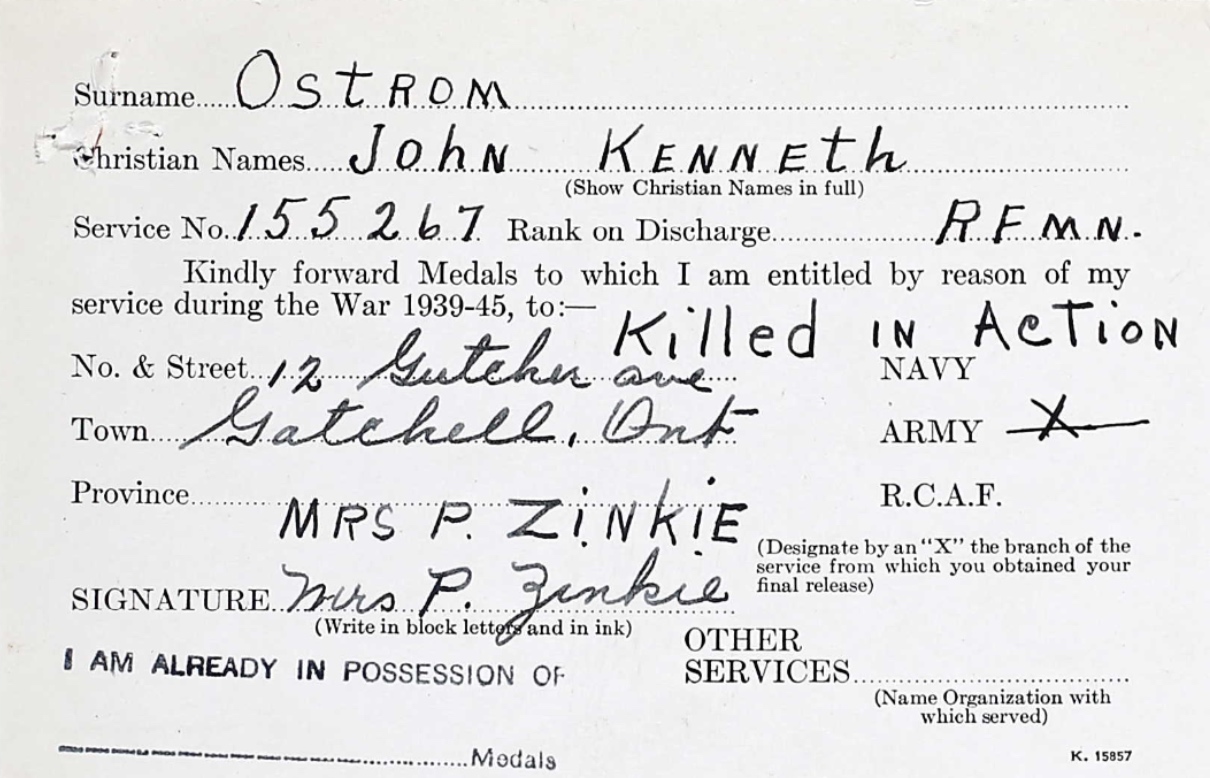 Surname OstROM
Christian Names JohN KENNEth
(Show Christian Names in full)
Service No. 155267 Rank on Discharge RFMN.
Kindly forward Medals to which I am entitled by reason of my
service during the War 1939-45, to:—
Killed IN ActioN
No. & Street 12 Gutcher ave NAVY
Town Gatchell, Ont ARMY X
Province R.C.A.F.
MRS P. ZiNKiE
(Designate by an "X" the branch of the
service from which you obtained your
final release)
SIGNATURE Mrs P. Zinkie
(Write in block letters and in ink)
OTHER
SERVICES
(Name Organization with
which served)
I AM ALREADY IN POSSESSION OF
Medals
K. 15857